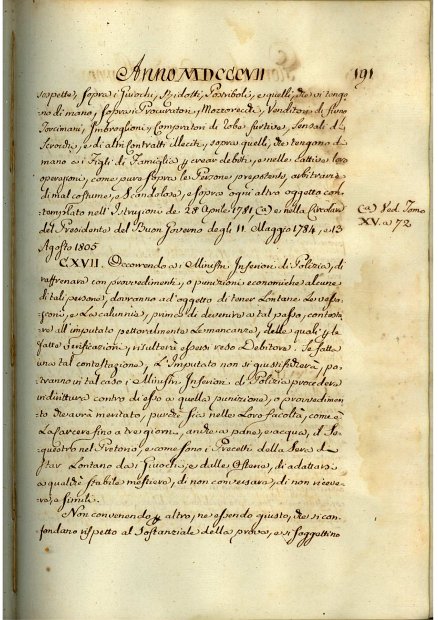 Anno MDCCCVII 191
sospette, sopra i Giuochi, Ridotti, Postriboli, e quelli, che vi tengo
no di mano, sopra i Procuratori, Mozzorecchi, Venditori di fumo
Torcimani, Imbroglioni, Compratori di roba furtiva, Sensali di
Scrocchi, e di altri Contratti illeciti, sopra quelli, che tengono di
mano a i Figli di Famiglia crear debiti, e nelle cattive loro
operazioni, come pure sopra le Persone prepotenti,
di mal costume, e Scandalose, e sopra ogni altro oggetto con=
templato nell' Istruzione de 28 Aprile 1781 (a) e nella Circolare
del Presidente del Buon Governo degli 11 Maggio 1784, e 13
Agosto 1805
(a) Ved. Tomo
XV. a 72
CXVII. Occorrendo a i Ministri Inferiori di Polizia, di
raffrenare con provvedimenti, o punizioni economiche alcune
di tali persone, dovranno ad oggetto di tener lontane le vessa=
zioni, e la calunnia, prima di devenire a tal passo, contesta
re all' imputato pettoralmente le mancanze, delle quali
fatte verificazioni, risulterà esserei reso Debitore. Se fatta
una tal contestazione, L'Imputato non si giustificherà, po=
tranno in tal caso i Ministri Inferiori di Polizia procedere
indirittura contro di esso a quella punizione, o provvedimen
to che avrà meritato, purchè sia nelle Loro facoltà, come
La Carcere fino a tre giorni, anche a pane, e acqua, il Se=
questro nel Pretorio, e come sono i Precetti della Sera di
star Lontano da i Giuochi, e dalle Osterie, di adattarsi
a qualche stabile mestiero, di non conversare, di non riceve
re, e simili.
Non convenendo altro, ne essendo giusto, che si con=
fondano rispetto al sostanziale della prova, e si soggettino